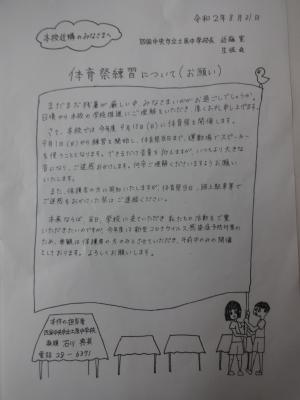 令和2年8月21日
本校近隣のみなさまへ
四国中央市立土居中学校長 近藤 実
生徒会
体育祭練習について(お願い)
まだまだ残暑が厳しい中、みなさまいかがお過ごしでしょうか。
日頃から本校の学校推進にご理解をいただき、厚くお礼申し上げます。
さて、本校では今年度9月13日(日)に体育祭を開催します。
9月1日(火)から練習を開始し、体育祭当日まで、運動場でスピーカー
を使うことになります。できるだけ音量を抑えますが、いつもより大きな
音になり、ご迷惑おかけします。何卒ご理解くださいますようお願い
いたします。
また、保護者の方に周知いたしますが、体育祭当日、路上駐車等で
ご迷惑をおかけした際はご連絡ください。
本来ならば、当日、学校に来ていただき 私たちの活動をご覧
いただきたいのですが、今年度は新型コロナウイルス感染症予防対策の
ため、参観は保護者の方のみとさせていただき、午前中のみの開催
としております。よろしくお願いします。
本件の担当者
四国中央市立土居中学校
教頭 石川
電話 28-6371